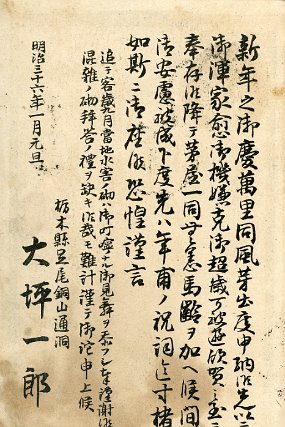 新年之御慶萬里同風芽出度申納候先以
御渾家愈御機嫌克御超歳可被遊欣賀之至
奉存候降テ茅屋一同無恙馬齢ヲ加ヘ候間
御安慮被成下度先ハ年甫ノ祝詞迄寸楮
如斯ニ御座候恐惶謹言
追テ客歳九月當地水害ノ砌ハ御叮寧ナル御見舞ヲ忝フシ奉謹謝候
混雑ノ砌拜答ノ禮ヲ缺キ候哉モ難計謹テ御詫申上候
明治三十六年一月元旦
栃木縣足尾銅山通洞
大坪一郎